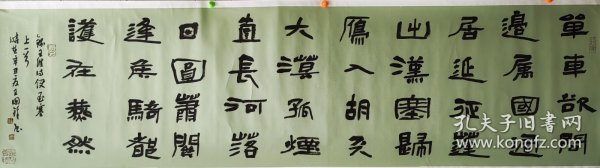 單車欲問
邊屬國過
居延征蓬
出漢塞歸
鴈入胡天
大漠孤煙
直長河落
日圓蕭關
逢矦騎都
護在燕然
録王維詩使至塞
上一首
孔夫子旧书网